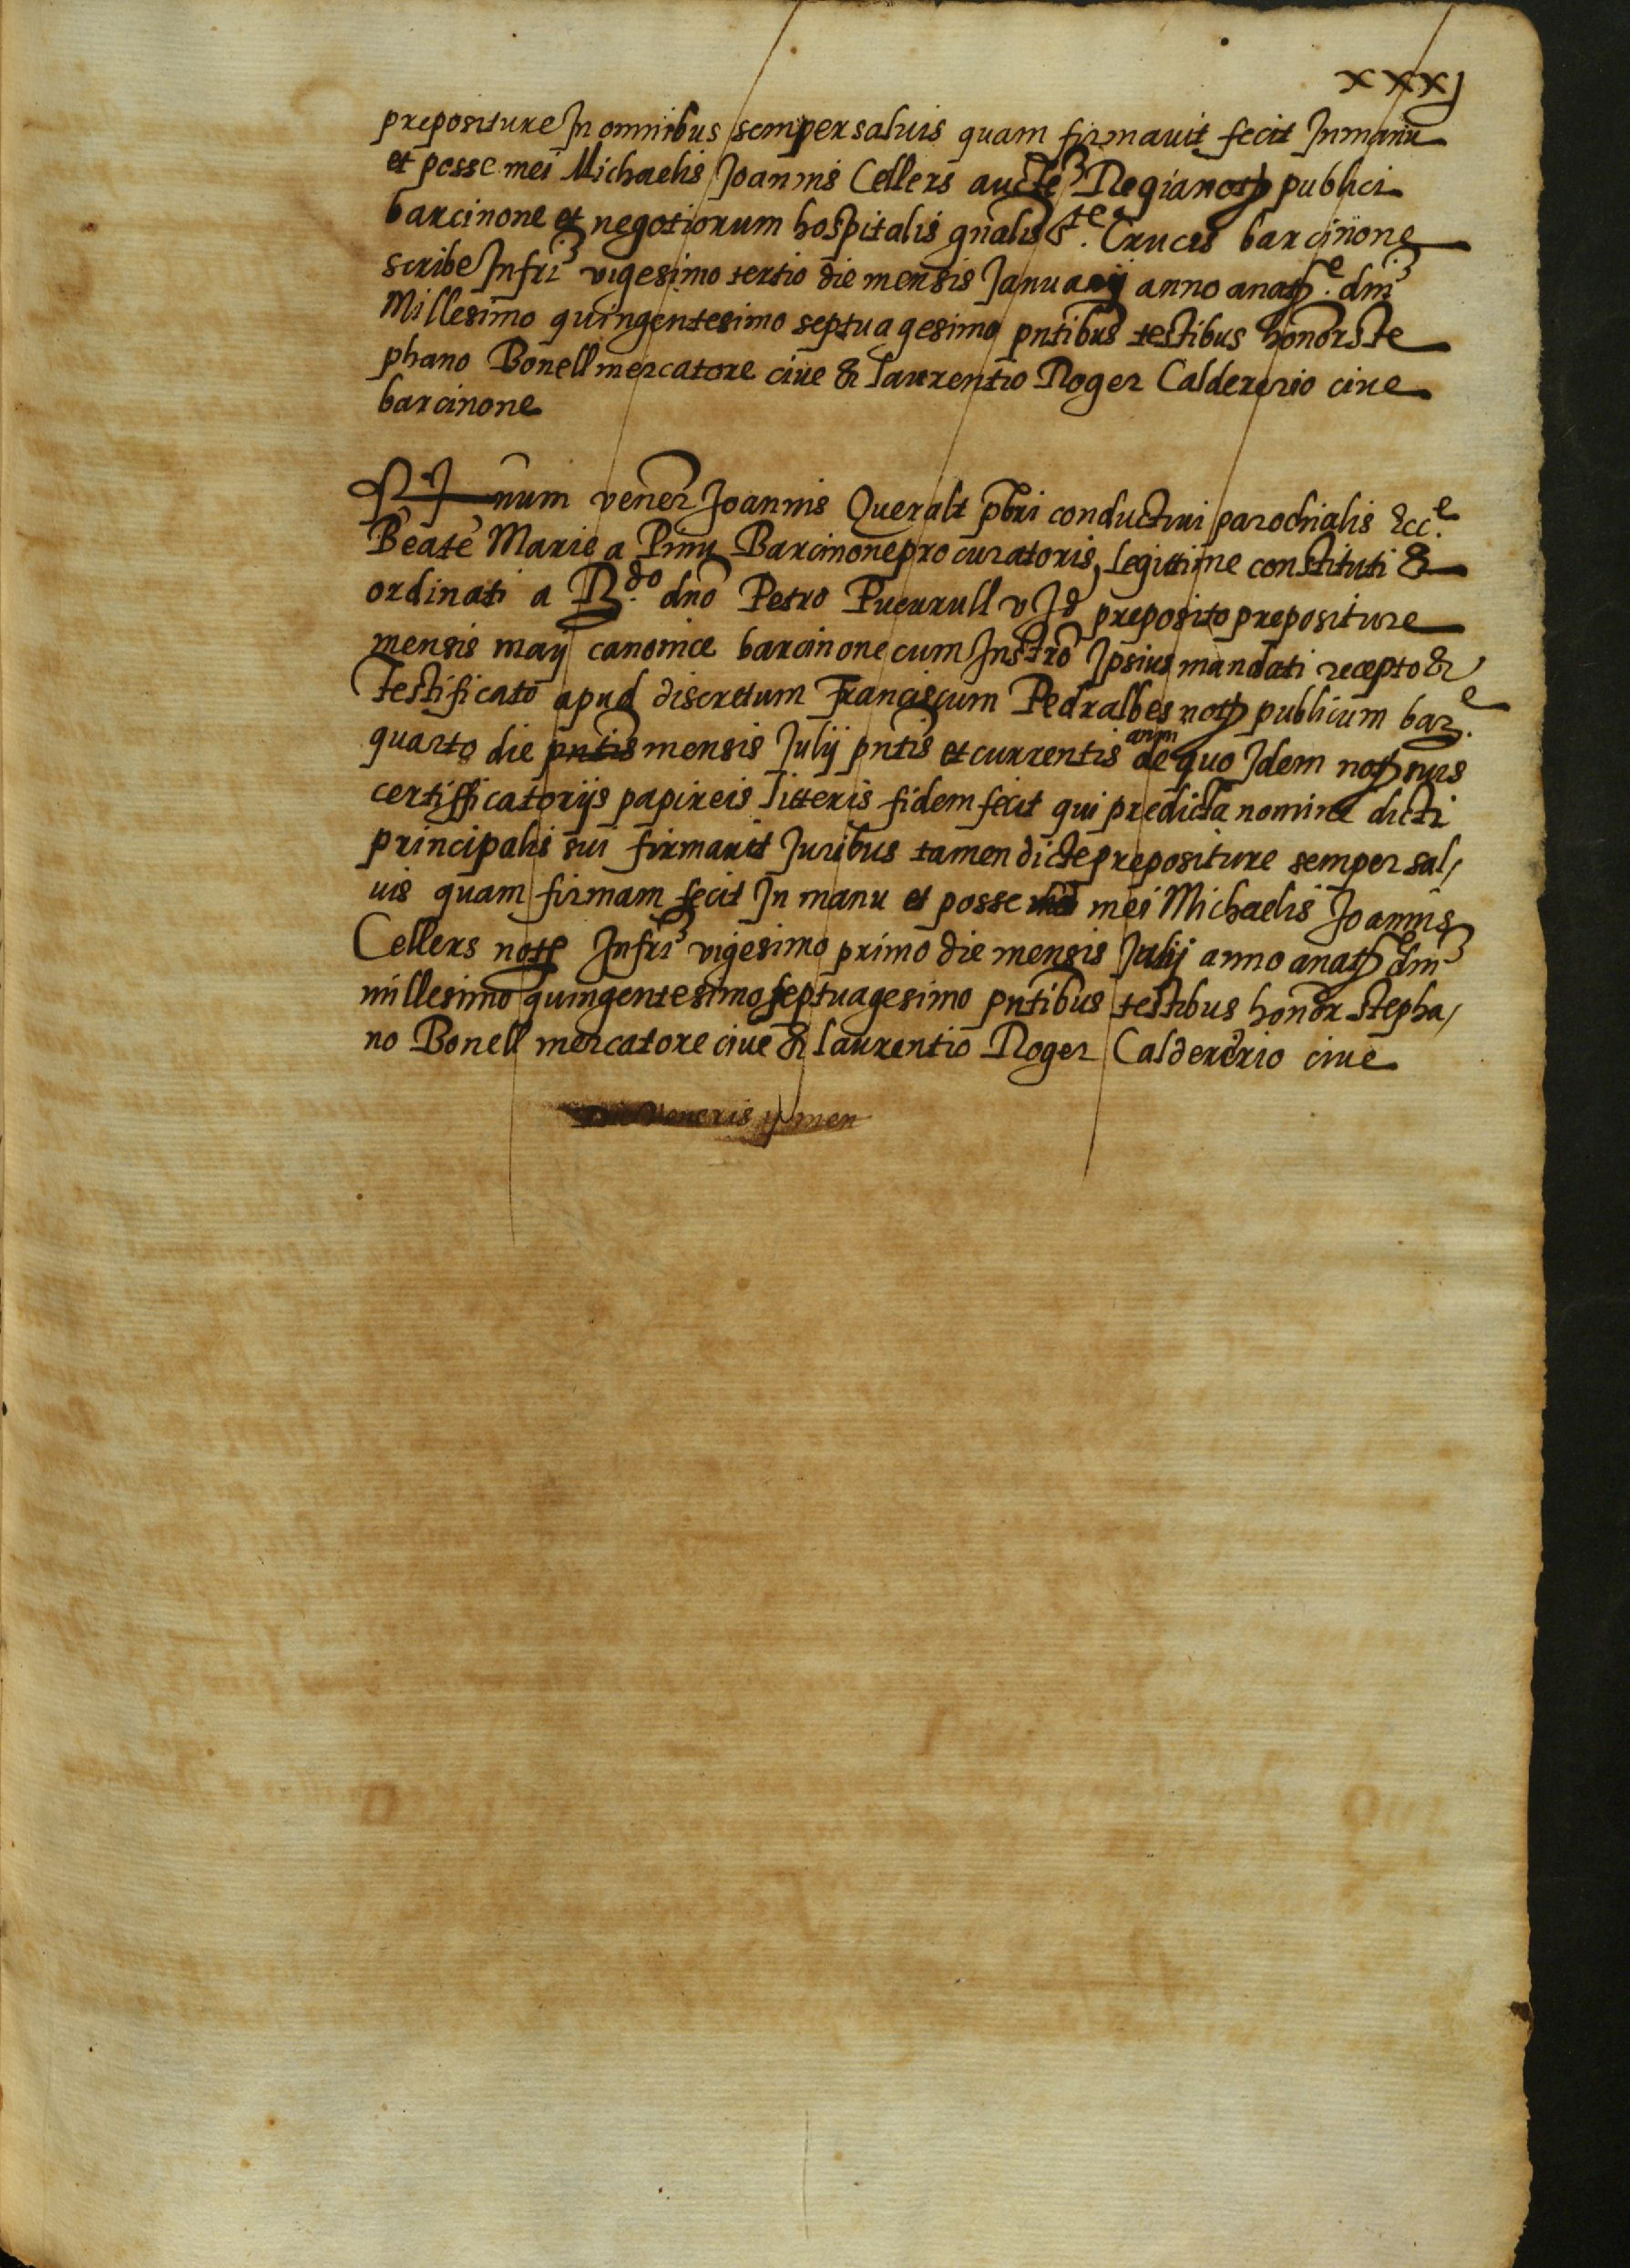 xxxj
prepositure In omnibus semper saluis quam firmauit fecit In manu
et posse mei Michaelis Joannis Cellers aucte Regia not publici
barcinone et negotiorum hospitalis gnalis Ste. Crucis barcinone
scribe Infri vigesimo tertio die mensis Januarij anno anat e. dni
Millesimo quingentesimo septuagesimo pntibus testibus honor Ste
phano Bonell mercatore ciue & laurentio Roger Caldererio ciue
barcinone
num vener Joannis Queralt pbri conductini parochialis Ecce.
Beate Marie a Pinu Barcinone procuratoris, legittime constituti &
ordinati a Rdo. dno Petro Pucurull v J d preposito prepositure
mensis maij canonice barcinone cum Instro Ipsius mandati recepto &
Testificato apud discretum Franciscum Pedralbes not publicum bare.
quarto die pntis mensis Julij pntis et currentis anni de quo Idem not suis
certifficatorijs papireis litteris fidem fecit qui predicta nomine dicti
principalis sui firmauit Juribus tamen dicte prepositure semper sal,
uis quam firmam fecit In manu et posse mei Michaelis Joannis
Cellers note Infri vigesimo primo die mensis Julij anno anat e dni
millesimo quingentesimo septuagesimo pntibus testibus honor Stepha,
no Bonell mercatore ciue & laurentio Roger Caldererio ciue
Die Veneris men